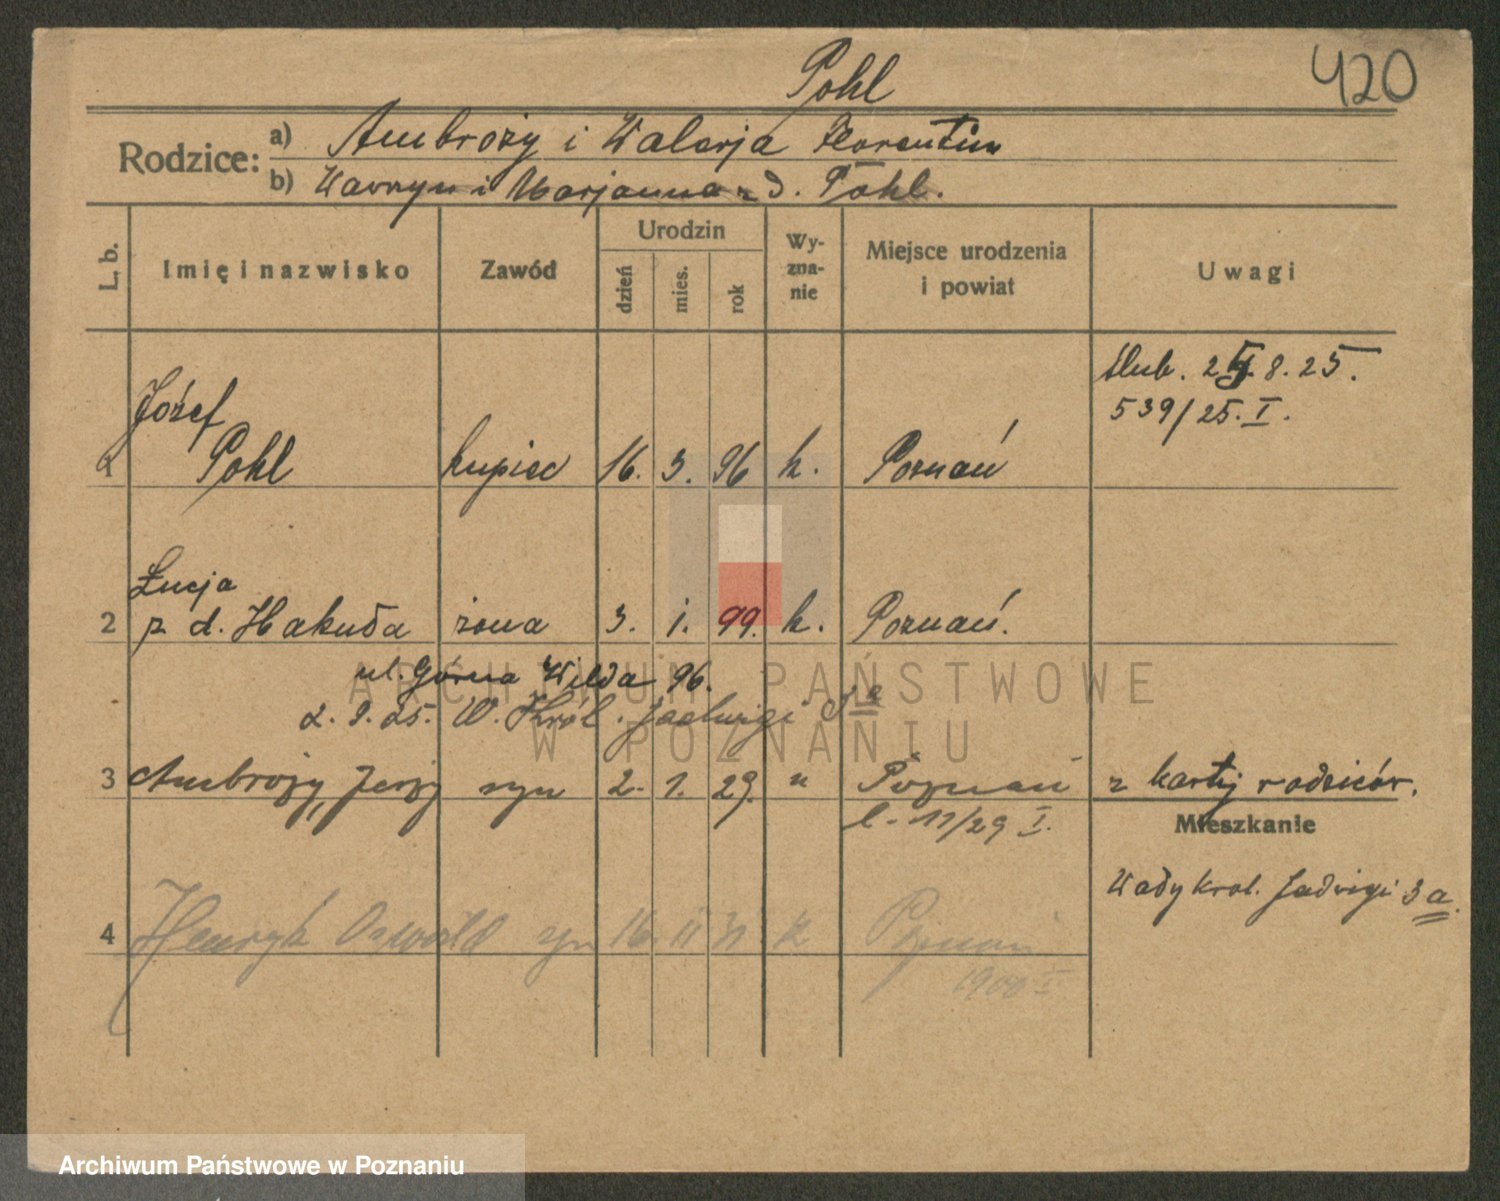 Pohl
420
Rodzice:
a) Ambroży i Walerja Florentin
b) Wawrzyn i Marjanna z d. Pohl.
L. b.
Imię i nazwisko
Zawód
Urodzin
dzień
mies.
rok
Wy-
zna-
nie
Miejsce urodzenia
i powiat
Uwagi
ślub. 25. 8. 25.
539/25. I.
Józef
1 Pohl kupiec 16. 3. 96 k. Poznań
Łucja
2 z d. Hakuda żona 3. 1. 99. k. Poznań.
ul. Górna Wilda 96.
2. 9. 25. W. Król. Jadwigi 3a
3 Ambroży, Jerzy syn 2. 1. 29. " Poznań z karty rodziców.
l. 11/29 I.
Mieszkanie
Wały Król. Jadwigi 3a.
4 Henryk Oswald syn 16. II 31 k Poznań
1900 I
ARCHIWUM PAŃSTWOWE
W POZNANIU
Archiwum Państwowe w Poznaniu